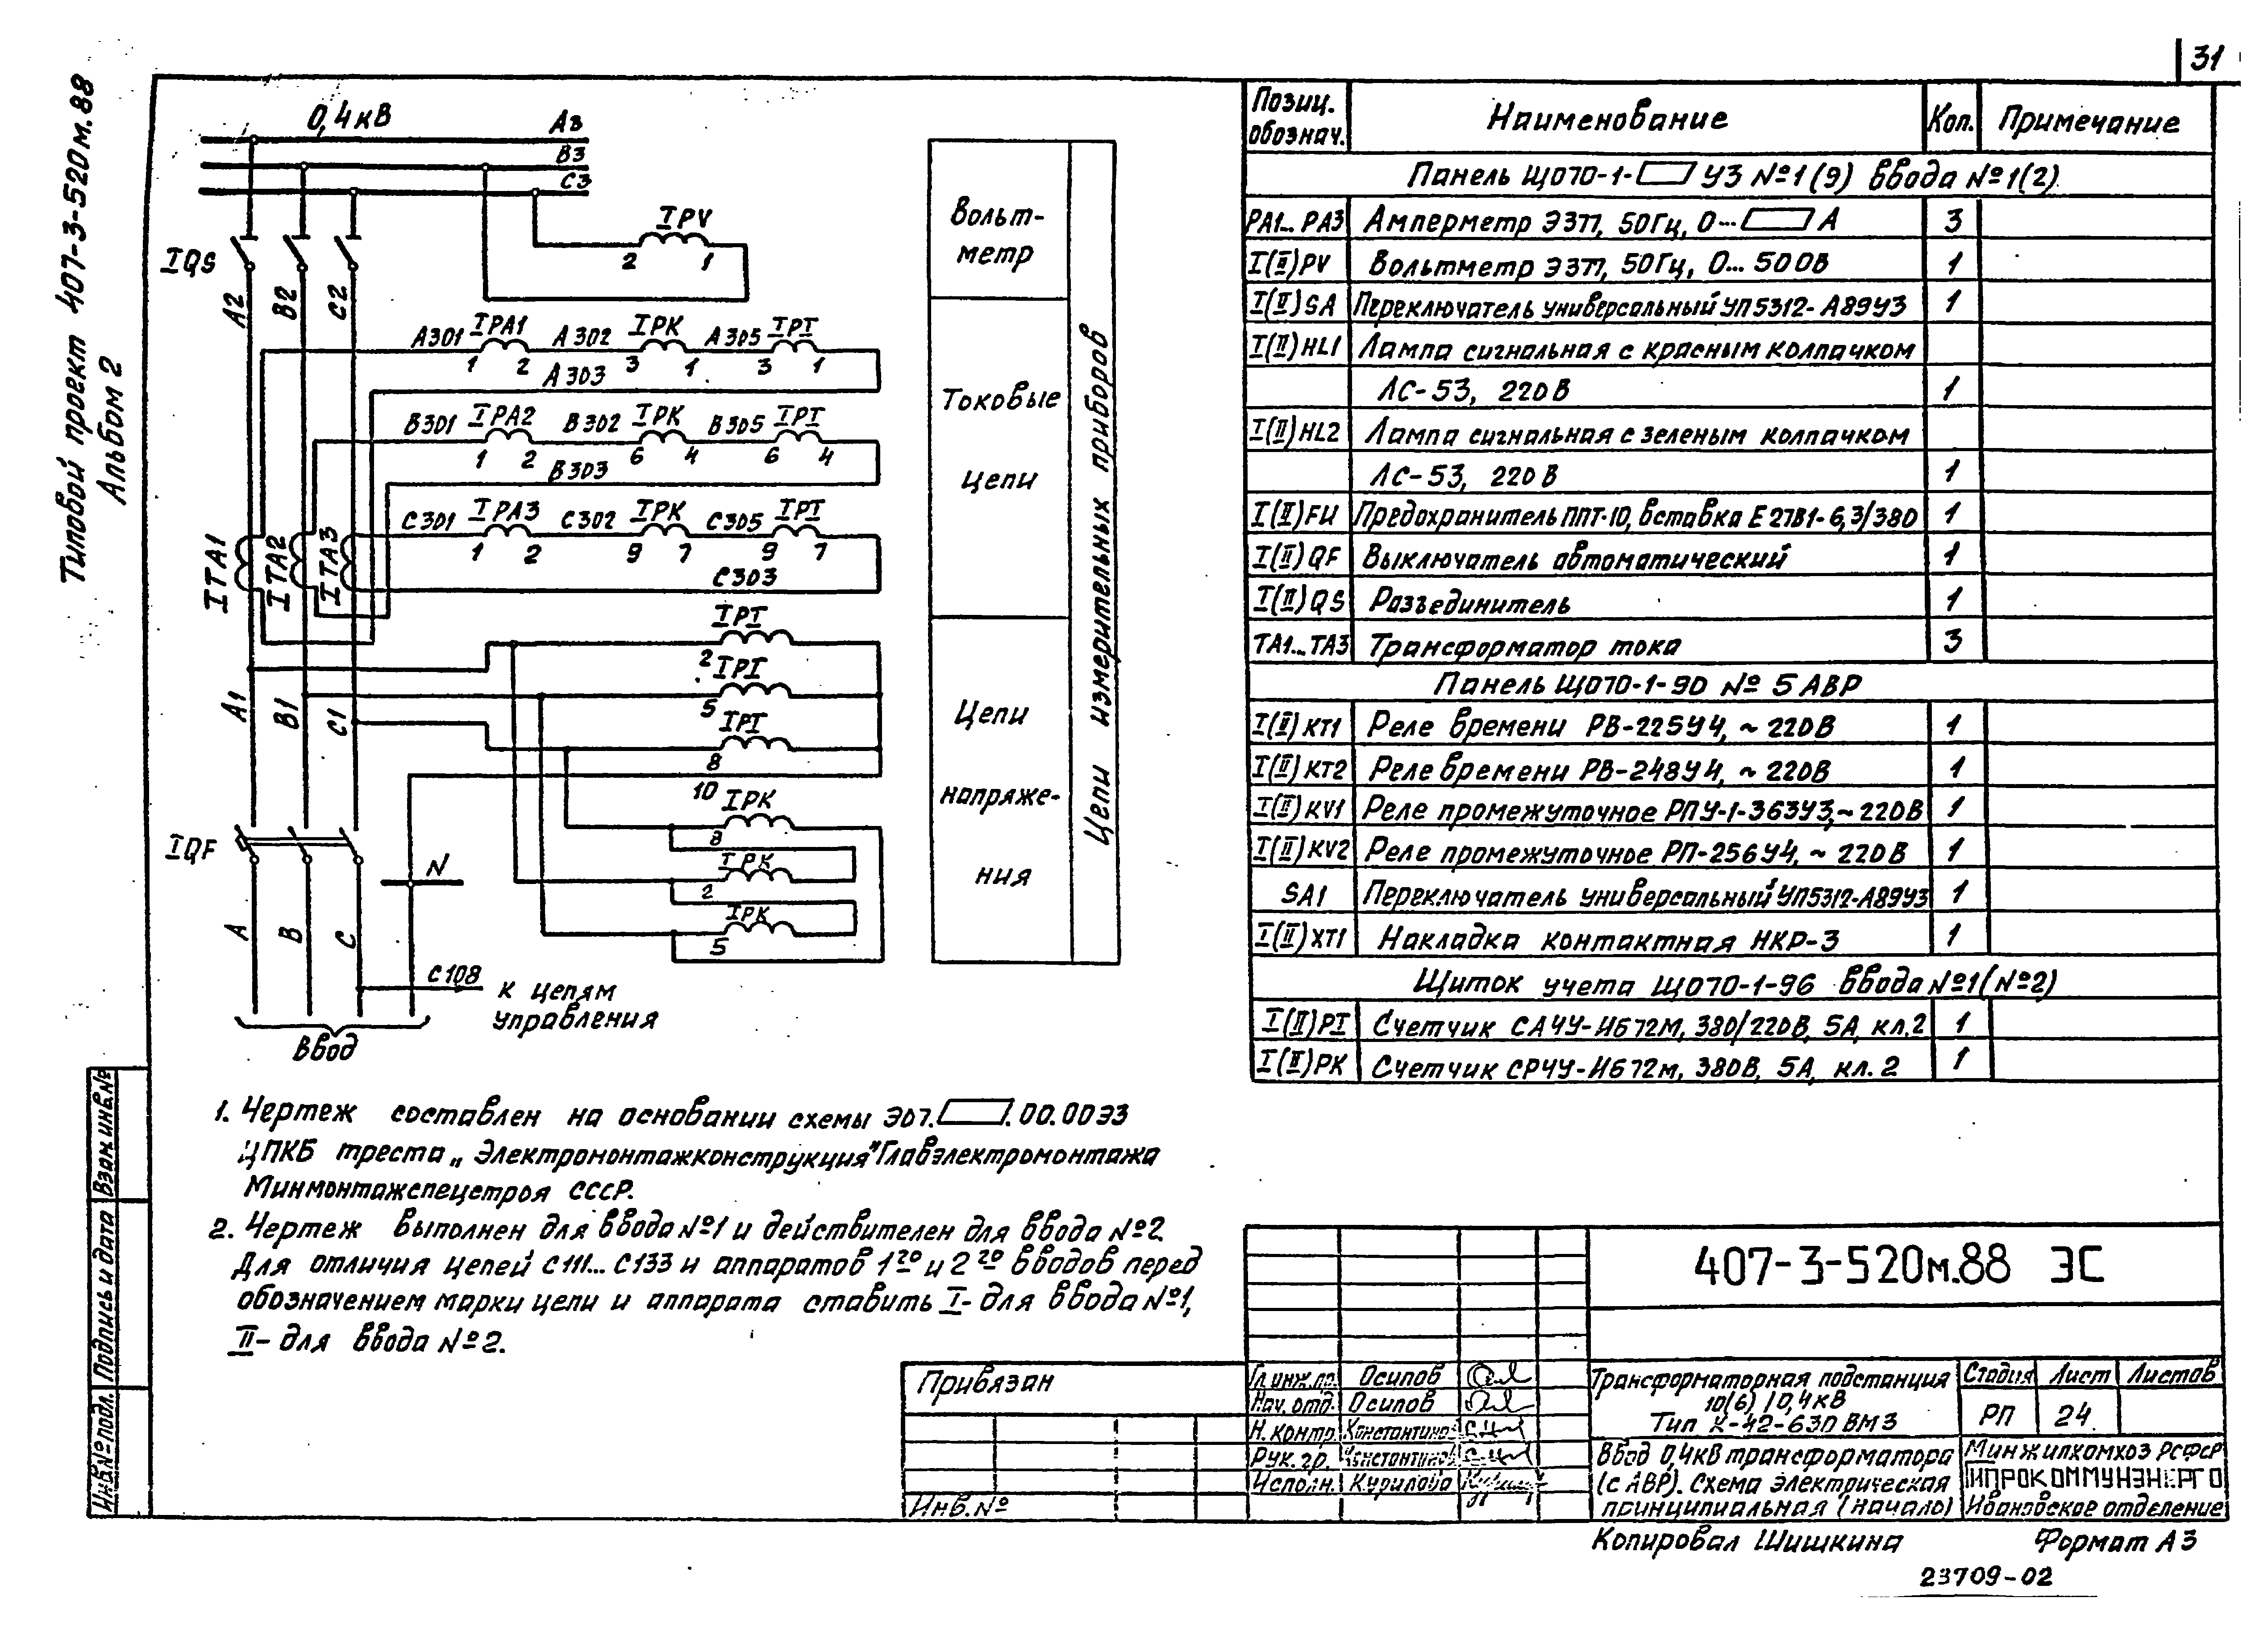 31
Типовой проект 407-3-520м.88
Альбом 2
0,4кВ
А3
В3
С3
IPV
2 1
IQS
А2 В2 С2
А301 IPA1 А302 IPK А305 IPI
1 2 3 1 3 1
А303
В301 IPA2 В302 IPK В305 IPI
1 2 6 4 6 4
В303
С301 IPA3 С302 IPK С305 IPI
1 2 9 7 9 7
С303
ITA1 ITA2 ITA3
IPI
2
IPI
5
IPI
8
10
IPK
8
IPK
2
IPK
5
А1 В1 С1
IQF
N
А В С
С108
к цепям
управления
Ввод
Вольт-
метр
Токовые
цепи
Цепи
напряже-
ния
Цепи измерительных приборов
Позиц. обознач. Наименование Кол. Примечание
Панель ЩО70-1- У3 №1(9) ввода №1(2)
PA1...PA3 Амперметр Э377, 50Гц, 0... А 3
I(II)PV Вольтметр Э377, 50Гц, 0...500В 1
I(II)SA Переключатель универсальный УП5312-А89У3 1
I(II)HL1 Лампа сигнальная с красным колпачком
АС-53, 220В 1
I(II)HL2 Лампа сигнальная с зеленым колпачком
АС-53, 220В 1
I(II)FU Предохранитель ППТ-10, вставка Е27В1-6,3/380 1
I(II)QF Выключатель автоматический 1
I(II)QS Разъединитель 1
TA1...TA3 Трансформатор тока 3
Панель ЩО70-1-90 № 5 АВР
I(II)KT1 Реле времени РВ-225У4, ~220В 1
I(II)KT2 Реле времени РВ-248У4, ~220В 1
I(II)KV1 Реле промежуточное РПУ-1-363У3,~220В 1
I(II)KV2 Реле промежуточное РП-256У4, ~ 220В 1
SA1 Переключатель универсальный УП5312-А89У3 1
I(II)XT1 Накладка контактная НКР-3 1
Щиток учета ЩО70-1-96 Ввода №1(№2)
I(II)PI Счетчик СА4У-И672М, 380/220В, 5А, кл.2 1
I(II)PK Счетчик СР4У-И672м, 380В, 5А, кл.2 1
1. Чертеж составлен на основании схемы Э07. .00.00Э3
ЦПКБ треста „Электромонтажконструкция" Главэлектромонтажа
Минмонтажспецстроя СССР.
2. Чертеж выполнен для ввода №1 и действителен для ввода №2.
Для отличия цепей С111...С133 и аппаратов 1го и 2го вводов перед
обозначением марки цепи и аппарата ставить I- для ввода №1,
II- для ввода №2.
Взам.инв.№
Подпись и дата
Инв.№подл.
Привязан
Инв.№
407-3-520м.88 ЭС
Гл.инж.пр. Осипов
Нач.отд. Осипов
Н.контр. Константинов
Рук.гр. Константинов
Исполн. Курилова
Трансформаторная подстанция
10(6)/0,4кВ
Тип К-42-630 ВМ3
Стадия Лист Листов
РП 24
Ввод 0,4кВ трансформатора
(с АВР). Схема электрическая
принципиальная (начало)
Минжилкомхоз РСФСР
ГИПРОКОММУНЭНЕРГО
Ивановское отделение
Копировал Шишкина Формат А3
23709-02